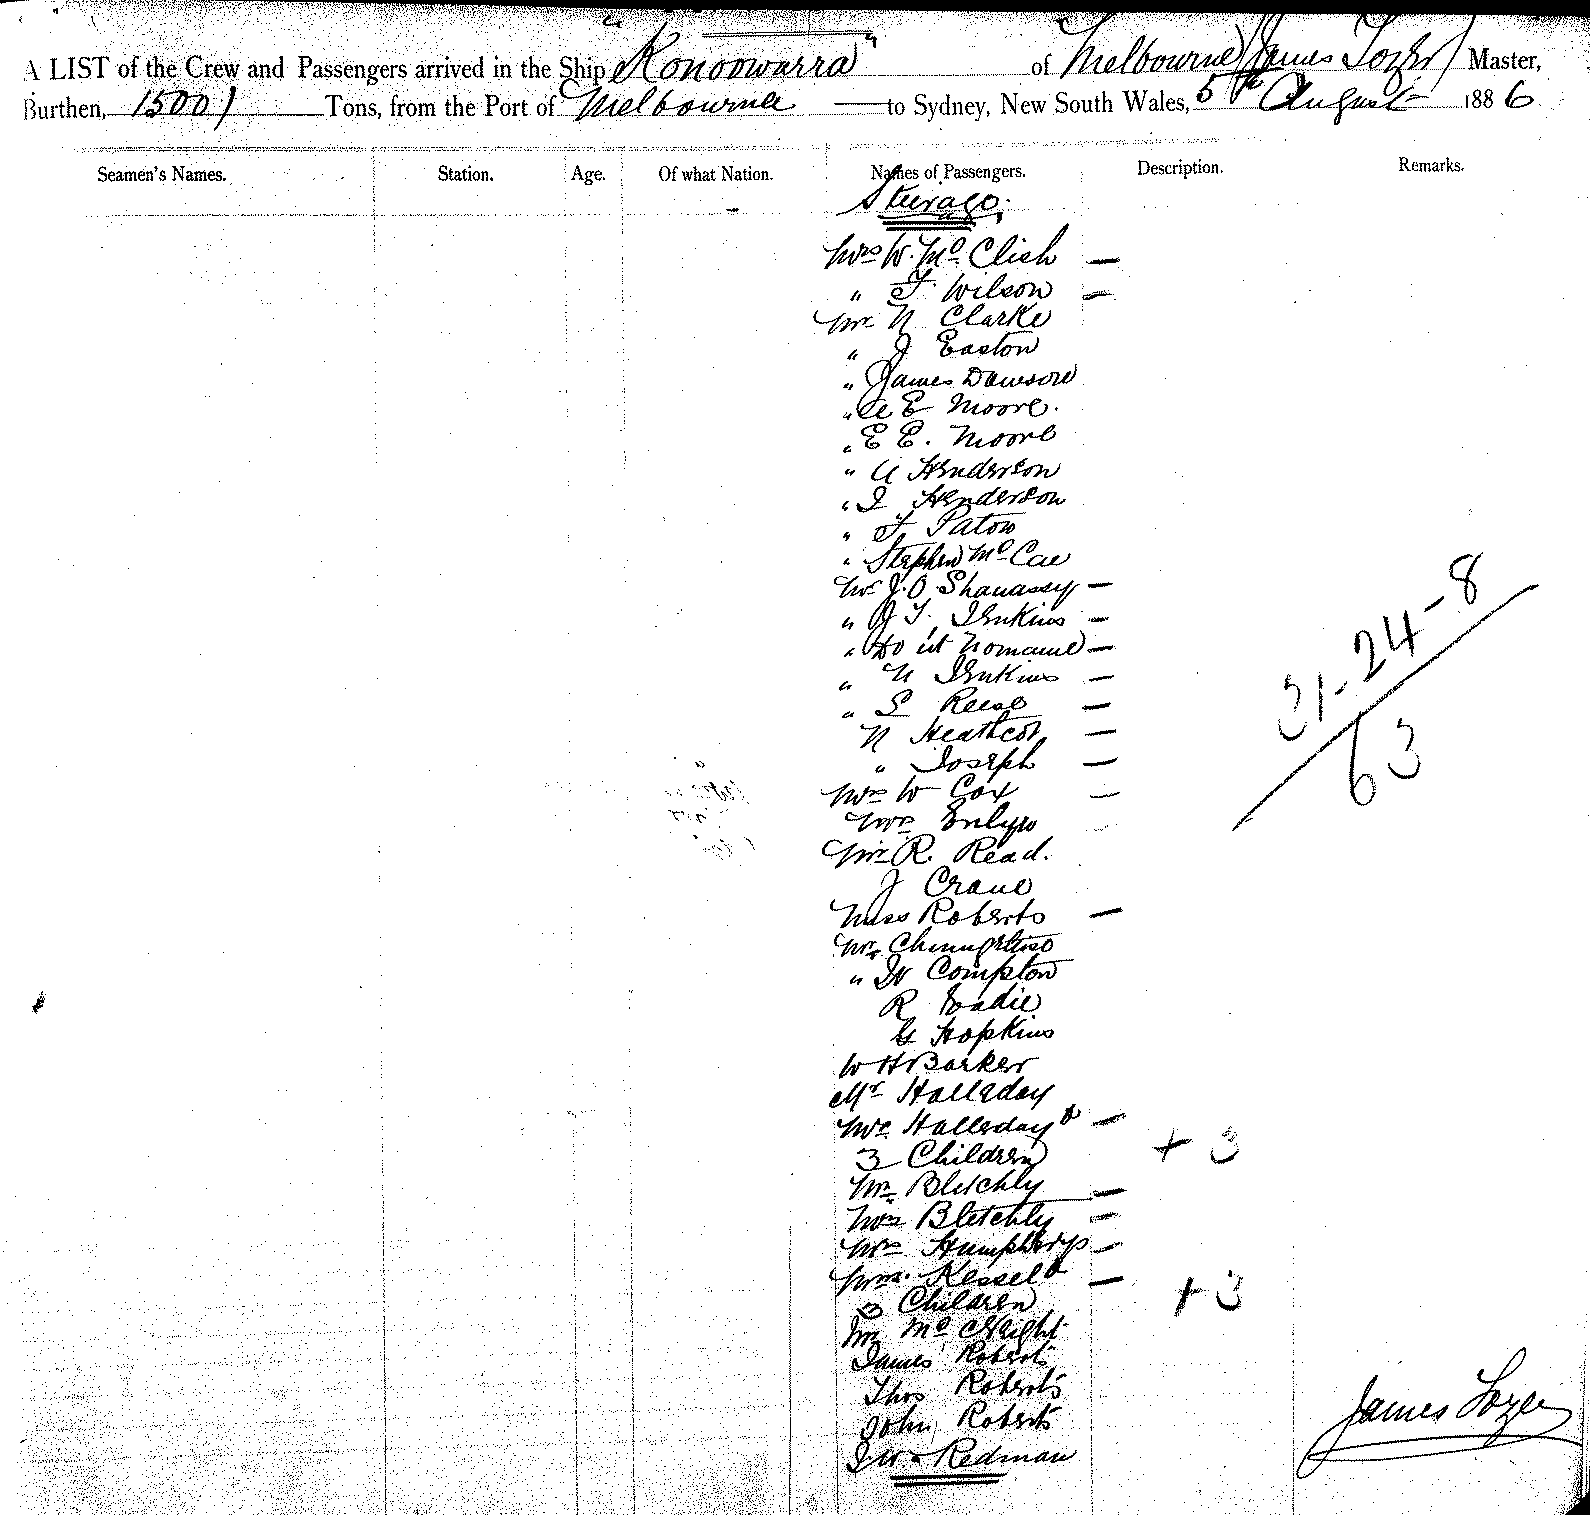 A LIST of the Crew and Passengers arrived in the Ship "Konoowarra" of Melbourne James Tozer Master,
Burthen, 1500 Tons, from the Port of Melbourne to Sydney, New South Wales, 5th August 1886
Seamen's Names. Station. Age. Of what Nation. Names of Passengers. Description. Remarks.
Steerage.
Mrs W. Mc Clish —
" F Wilson —
Mr N Clarke
" J Easton
" James Dawson
" A E Moore.
" E E. Moore
" A Henderson
" I Henderson
" F Paton
" Stephen Mc Cae
Mr J. O Shanassy —
" J T. Jenkins —
" Do —
" N Jenkins —
" S Reese —
N Heathcot —
" Joseph —
Mrs W Cox —
Mrs Emlyn
Mr R. Read.
J Crane
Miss Roberts —
Mr
" W Compton
R Eadie
G Hopkins
W H Barker
Mr Halleday
Mrs Halleday & —
3 Children + 3
Mr Bletchly —
Mrs Bletchly —
Mrs Humphreys —
Mrs. Kessel & —
3 Children + 3
Mr Mc Knight
James Roberts
Thos Roberts
John Roberts
J W. Redman
31-24-8
63
James Tozer